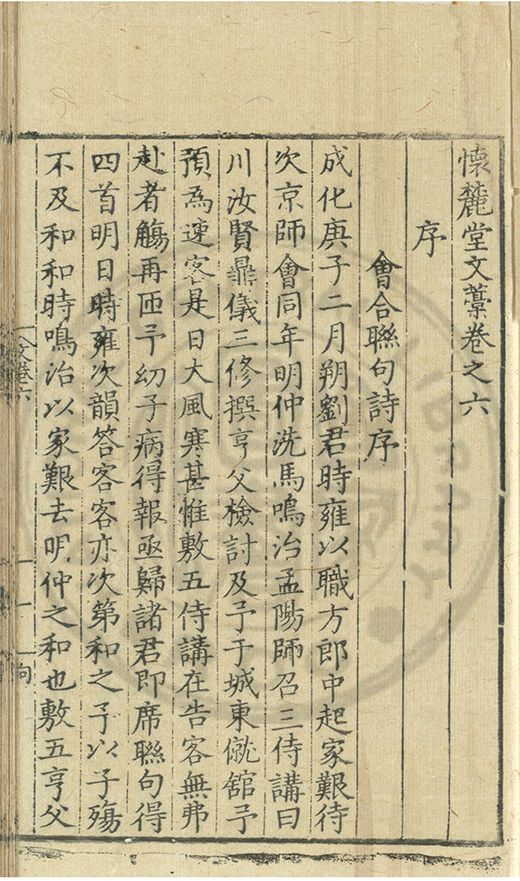 懷麓堂文藁卷之六
序
會合聯句詩序
成化庚子二月朔劉君時雍以職方郎中起家艱待
次京師會同年明仲洗馬鳴治孟陽師召三侍講曰
川汝賢鼎儀三修撰亨父檢討及予于城東僦舘予
預為速客是日大風寒甚惟敷五侍講在告客無弗
赴者觴再匝予幼子病得報亟歸諸君即席聯句得
四首明日時雍次韻答客客亦次第和之予以子殤
不及和和時鳴治以家艱去明仲之和也敷五亨父
文卷六
一